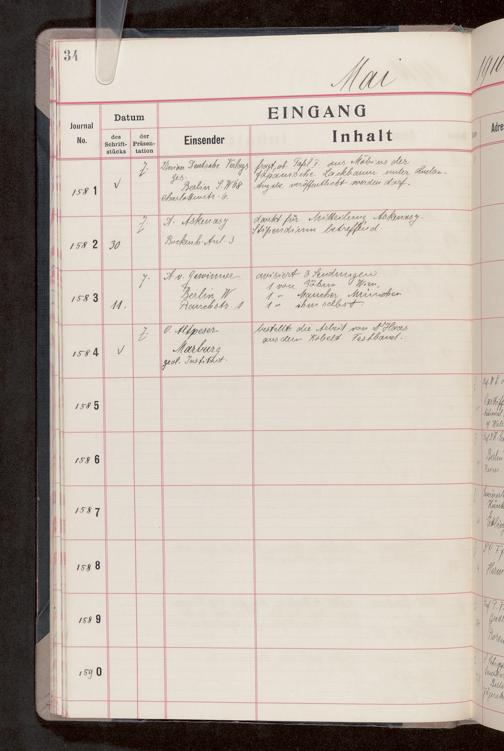 34
Mai
1910
EINGANG
Journal No.
Datum
des Schriftstücks
der Präsentation
Einsender
Inhalt
Adre
1581 √ 7.
Deutsche Verlags
Ges.
Berlin S.W 68
Charlottenstr. 6.
fragt, ob Tafel I. aus Möbius der
japanische Lackbaum unter Quellen-
angabe veröffentlicht werden darf.
1582 30 7.
A. Askenasy
Bockenh. Anl. 3
dankt für Mitteilung Askenasy-
Stipendium betreffend
1583 11. 7.
A. v. Gwinner
Berlin W
Rauchstr. 1
avisiert 3 Sendungen
1 von Wien.
1 " München
1 " ihm selbst.
1584 √ 7.
O. Altpeser
Marburg
geol. Institut.
bestellt die Arbeit von Dr Haas
aus dem Kobelt Festband.
1585
1586
1587
1588
1589
1590